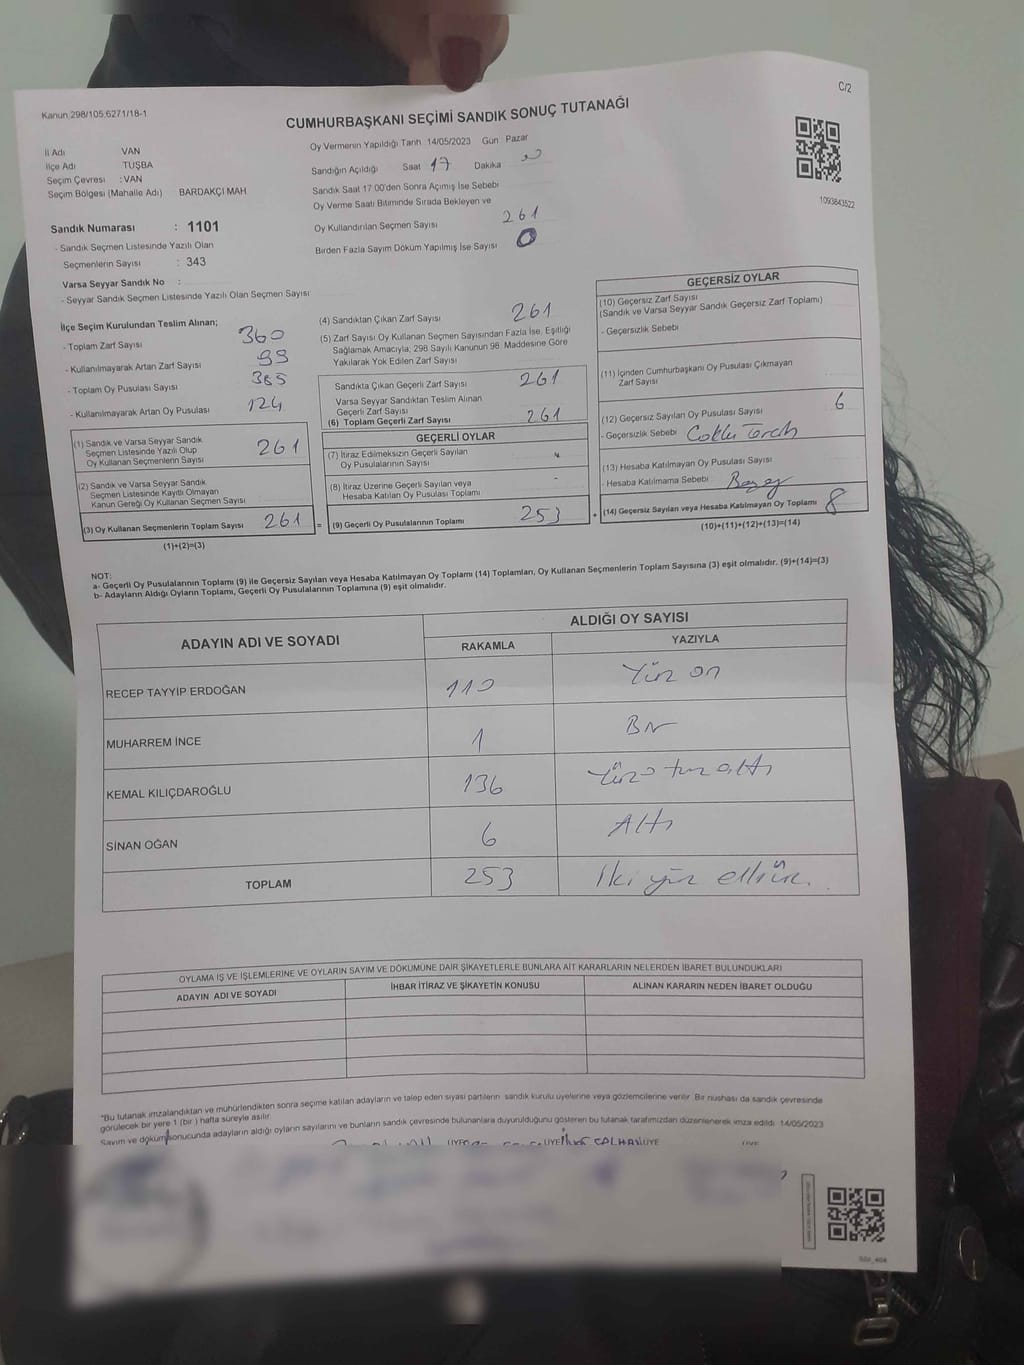 Kanun 298/105;6271/18-1
C/2
CUMHURBAŞKANI SEÇİMİ SANDIK SONUÇ TUTANAĞI
1093843522
İl Adı VAN
İlçe Adı TUŞBA
Seçim Çevresi : VAN
Seçim Bölgesi (Mahalle Adı) BARDAKÇI MAH
Sandık Numarası : 1101
- Sandık Seçmen Listesinde Yazılı Olan
Seçmenlerin Sayısı : 343
Varsa Seyyar Sandık No :
- Seyyar Sandık Seçmen Listesinde Yazılı Olan Seçmen Sayısı
Oy Vermenin Yapıldığı Tarih 14/05/2023 Gün Pazar
Sandığın Açıldığı Saat 17 Dakika
Sandık Saat 17:00'den Sonra Açımış İse Sebebi
Oy Verme Saati Bitiminde Sırada Bekleyen ve
Oy Kullandırılan Seçmen Sayısı 261
Birden Fazla Sayım Döküm Yapılmış İse Sayısı 0
İlçe Seçim Kurulundan Teslim Alınan;
- Toplam Zarf Sayısı 360
- Kullanılmayarak Artan Zarf Sayısı 99
- Toplam Oy Pusulası Sayısı 385
- Kullanılmayarak Artan Oy Pusulası 124
(1) Sandık ve Varsa Seyyar Sandık
Seçmen Listesinde Yazılı Olup
Oy Kullanan Seçmenlerin Sayısı 261
(2) Sandık ve Varsa Seyyar Sandık
Seçmen Listesinde Kayıtlı Olmayan
Kanun Gereği Oy Kullanan Seçmen Sayısı
(3) Oy Kullanan Seçmenlerin Toplam Sayısı 261 =
(1)+(2)=(3)
(4) Sandıktan Çıkan Zarf Sayısı 261
(5) Zarf Sayısı Oy Kullanan Seçmen Sayısından Fazla İse, Eşitliği
Sağlamak Amacıyla, 298 Sayılı Kanunun 98. Maddesine Göre
Yakılarak Yok Edilen Zarf Sayısı
Sandıkta Çıkan Geçerli Zarf Sayısı 261
Varsa Seyyar Sandıktan Teslim Alınan
Geçerli Zarf Sayısı
(6) Toplam Geçerli Zarf Sayısı 261
GEÇERLİ OYLAR
(7) İtiraz Edilmeksizin Geçerli Sayılan
Oy Pusulalarının Sayısı
(8) İtiraz Üzerine Geçerli Sayılan veya
Hesaba Katılan Oy Pusulası Toplamı -
(9) Geçerli Oy Pusulalarının Toplamı 253 +
GEÇERSİZ OYLAR
(10) Geçersiz Zarf Sayısı
(Sandık ve Varsa Seyyar Sandık Geçersiz Zarf Toplamı)
- Geçersizlik Sebebi
(11) İçinden Cumhurbaşkanı Oy Pusulası Çıkmayan
Zarf Sayısı
(12) Geçersiz Sayılan Oy Pusulası Sayısı 6
- Geçersizlik Sebebi Çoklu Tercih
(13) Hesaba Katılmayan Oy Pusulası Sayısı
- Hesaba Katılmama Sebebi
(14) Geçersiz Sayılan veya Hesaba Katılmayan Oy Toplamı 8
(10)+(11)+(12)+(13)=(14)
NOT:
a- Geçerli Oy Pusulalarının Toplamı (9) ile Geçersiz Sayılan veya Hesaba Katılmayan Oy Toplamı (14) Toplamları, Oy Kullanan Seçmenlerin Toplam Sayısına (3) eşit olmalıdır. (9)+(14)=(3)
b- Adayların Aldığı Oyların Toplamı, Geçerli Oy Pusulalarının Toplamına (9) eşit olmalıdır.
ADAYIN ADI VE SOYADI ALDIĞI OY SAYISI
RAKAMLA YAZIYLA
RECEP TAYYİP ERDOĞAN 110 Yüz on
MUHARREM İNCE 1 Bir
KEMAL KILIÇDAROĞLU 136 Yüz otuz altı
SİNAN OĞAN 6 Altı
TOPLAM 253 İki yüz elli üç
OYLAMA İŞ VE İŞLEMLERİNE VE OYLARIN SAYIM VE DÖKÜMÜNE DAİR ŞİKAYETLERLE BUNLARA AİT KARARLARIN NELERDEN İBARET BULUNDUKLARI
ADAYIN ADI VE SOYADI İHBAR İTİRAZ VE ŞİKAYETİN KONUSU ALINAN KARARIN NEDEN İBARET OLDUĞU
"Bu tutanak imzalandıktan ve mühürlendikten sonra seçime katılan adayların ve talep eden siyasi partilerin sandık kurulu üyelerine veya gözlemcilerine verilir. Bir nüshası da sandık çevresinde
görülecek bir yere 1 (bir) hafta süreyle asılır.
Sayım ve döküm sonucunda adayların aldığı oyların sayılarını ve bunların sandık çevresinde bulunanlara duyurulduğunu gösteren bu tutanak tarafımızdan düzenlenerek imza edildi. 14/05/2023